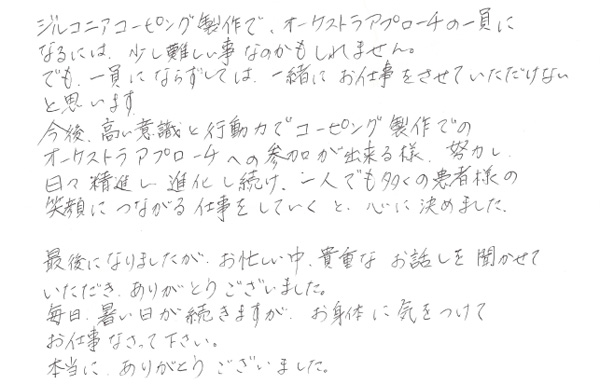 ジルコニアコーピング製作で、オーケストラアプローチの一員に
なるには、少し難しい事なのかもしれません。
でも、一員にならずしては、一緒にお仕事をさせていただけない
と思います。
今後、高い意識と行動力でコーピング製作での
オーケストラアプローチへの参加が出来る様、努力し、
日々精進し、進化し続け、一人でも多くの患者様の
笑顔につながる仕事をしていくと、心に決めました。
最後になりましたが、お忙しい中、貴重なお話しを聞かせて
いただき、ありがとうございました。
毎日、暑い日が続きますが、お身体に気をつけて
お仕事なさって下さい。
本当に、ありがとうございました。